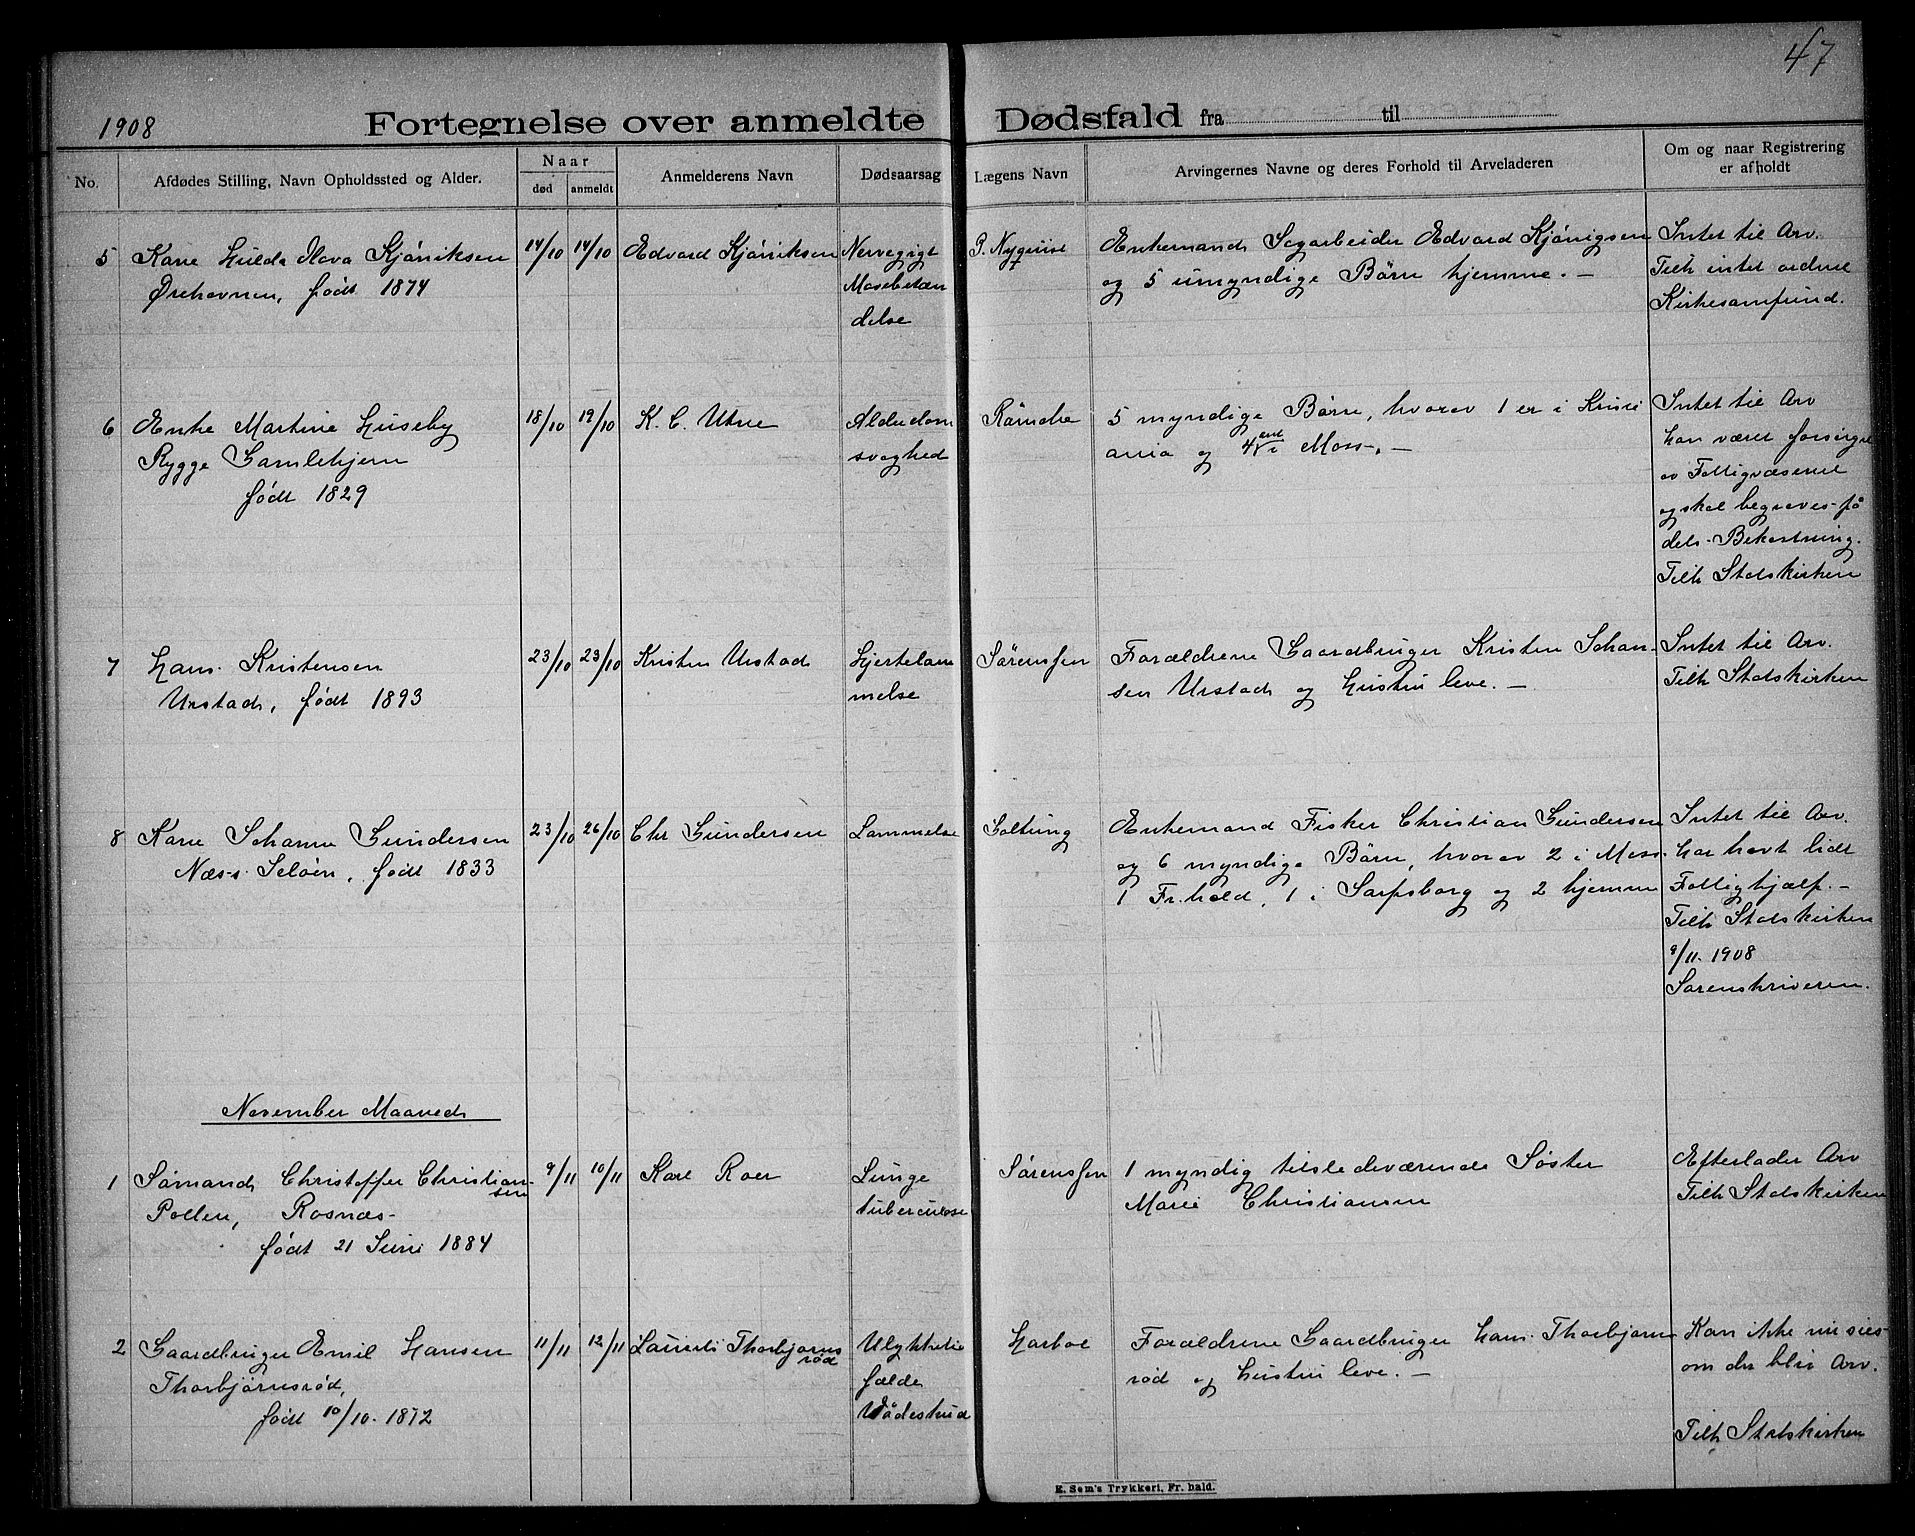 47
1908 Fortegnelse over anmeldte Dødsfald fra til
No.
Afdødes Stilling, Navn Opholdssted og Alder.
Naar
død
anmeldt
Anmelderens Navn
Dødsaarsag
Lægens Navn
Arvingernes Navne og deres Forhold til Arveladeren
Om og naar Registrering
er afholdt
5 Kane Hulda Kjøniksen 14/10 14/10 Edvard Kjøniksen Nervegigt P. Nyquist Enkemand Sagarbeider Edvard Kjønigsen Intet til Arv.
Ørehavnen, født 1874 Mavebetæn og 5 umyndige Børn hjemme. — Tilh intet ordnet
delse Kirkesamfund.
6 Enke Martine Huseby 18/10 19/10 K. C. Utne Alderdom 5 myndige Børn, hvorav 1 er i Kristi Intet til Arv
Rygge Gamlehjem svaghed ania og 4 i Moss. — har været forsörget
født 1829 av Fattigvæsenet
og skal begraves på
dets Bekostning.
Tilh Statskirken
7 Hans Kristensen 23/10 23/10 Kristen Urstad Hjertelam Sørenssen Forældrene Gaardbruger Kristen Johan- Intet til Arv.
Urstad, født 1893 melse sen Urstad og Hustru leve. — Tilh Statskirken
8 Kane Johanne Gundersen 23/10 26/10 Chr Gundersen Lammelse Soltung Enkemand Fisker Christian Gundersen Intet til Arv.
Næs Seløen, født 1833 og 6 myndige Børn, hvorav 2 i Moss. har havt lidt
1 Fr.hald, 1 i Sarpsborg og 2 hjemme Fattighjælp. —
Tilh Statskirken
9/11. 1908
Sorenskriveren.
November Maaned
1 Sømand Christoffer Christian- 9/11 10/11 Karl Roer Lunge Sørenssen 1 myndig tilstedeværende Søster Efterlader Arv
sen
Pollen, Rosnæs tuberculose Marie Christiansen Tilh Statskirken
født 21 Juni 1884
2 Gaardbruger Emil Hansen 11/11 12/11 Laurits Thorbjørns Ulykkestil Harboe Forældrene Gaardbruger Hans Thorbjørns Kan ikke nu sies
rød
Thorbjørnsrød, fælde rød og Hustru leve. — om der blir Arv.
født 10/10. 1872 Vådeskud
Tilh Statskirken
E. Sem's Trykkeri, Fr. hald.